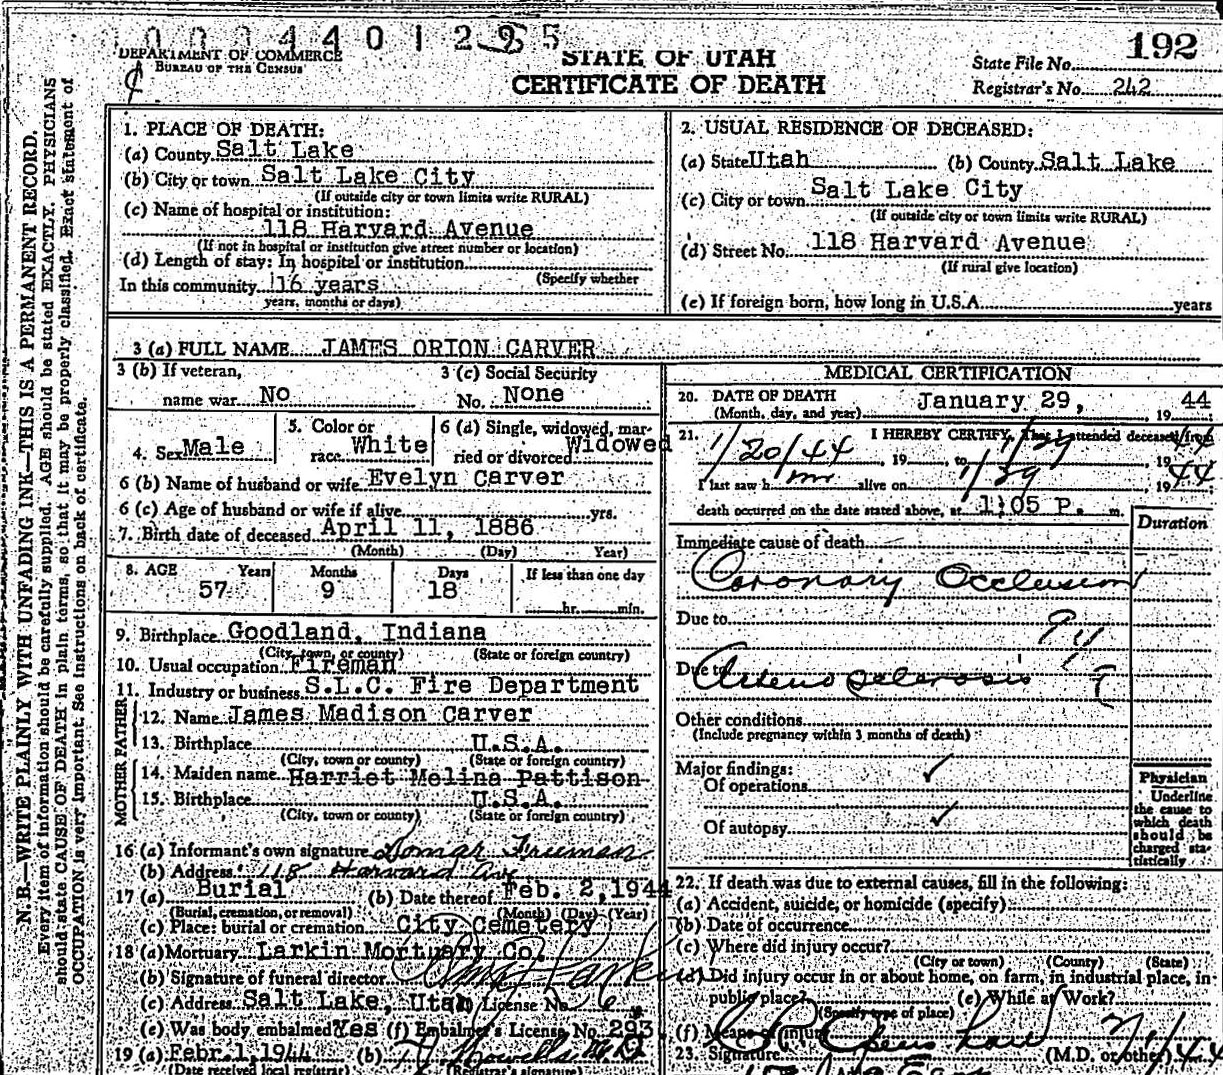 0 0 0 4 4 0 1 2 9 5
DEPARTMENT OF COMMERCE
BUREAU OF THE CENSUS
STATE OF UTAH
CERTIFICATE OF DEATH
State File No. 192
Registrar's No. 242
N.B.—WRITE PLAINLY WITH UNFADING INK—THIS IS A PERMANENT RECORD.
Every item of information should be carefully supplied. AGE should be stated EXACTLY. PHYSICIANS
should state CAUSE OF DEATH in plain terms, so that it may be properly classified. Exact statement of
OCCUPATION is very important. See instructions on back of certificate.
1. PLACE OF DEATH:
(a) County Salt Lake
(b) City or town Salt Lake City
(If outside city or town limits write RURAL)
(c) Name of hospital or institution:
118 Harvard Avenue
(If not in hospital or institution give street number or location)
(d) Length of stay: In hospital or institution
(Specify whether
In this community 16 years
years, months or days)
2. USUAL RESIDENCE OF DECEASED:
(a) State Utah (b) County Salt Lake
(c) City or town Salt Lake City
(If outside city or town limits write RURAL)
(d) Street No. 118 Harvard Avenue
(If rural give location)
(e) If foreign born, how long in U.S.A. years
3 (a) FULL NAME JAMES ORION CARVER
3 (b) If veteran,
name war No
3 (c) Social Security
No. None
4. Sex Male
5. Color or
race White
6 (d) Single, widowed, mar-
ried or divorced Widowed
6 (b) Name of husband or wife Evelyn Carver
6 (c) Age of husband or wife if alive yrs.
7. Birth date of deceased April 11, 1886
(Month) (Day) Year)
8. AGE Years Months Days If less than one day
57 9 18 hr. min.
9. Birthplace Goodland, Indiana
(City, town, or county) (State or foreign country)
10. Usual occupation Fireman
11. Industry or business S.L.C. Fire Department
MOTHER FATHER
12. Name James Madison Carver
13. Birthplace U.S.A.
(City, town or county) (State or foreign country)
14. Maiden name Harriet Melina Pattison
15. Birthplace U.S.A.
(City, town or county) (State or foreign country)
16 (a) Informant's own signature Freeman
(b) Address 118 Harvard Ave
17 (a) Burial (b) Date thereof Feb. 2, 1944
(Burial, cremation, or removal) (Month) (Day) (Year)
(c) Place: burial or cremation City Cemetery
18 (a) Mortuary Larkin Mortuary Co.
(b) Signature of funeral director Larkin
(c) Address Salt Lake, Utah License No. 6
(e) Was body embalmed Yes (f) Embalmer's License No. 293
19 (a) Febr. 1, 1944 (b)
(Date received local registrar) (Registrar's signature)
MEDICAL CERTIFICATION
20. DATE OF DEATH
(Month, day, and year) January 29, 1944
21. I HEREBY CERTIFY, That I attended deceased from
1/20/44, 19 , to 1/29, 1944
I last saw h im alive on 1/29, 1944
death occurred on the date stated above, at 1:05 P. m.
Duration
Immediate cause of death
Coronary Occlusion
Due to
Due to Arteriosclerosis
Other conditions
(Include pregnancy within 3 months of death)
Major findings:
Of operations ✓
Of autopsy ✓
Physician
Underline
the cause to
which death
should be
charged sta-
tistically
22. If death was due to external causes, fill in the following:
(a) Accident, suicide, or homicide (specify)
(b) Date of occurrence
(c) Where did injury occur?
(City or town) (County) (State)
Did injury occur in or about home, on farm, in industrial place, in
public place? (e) While at Work?
(Specify type of place)
(f) Means of injury
23. Signature (M.D. or other)